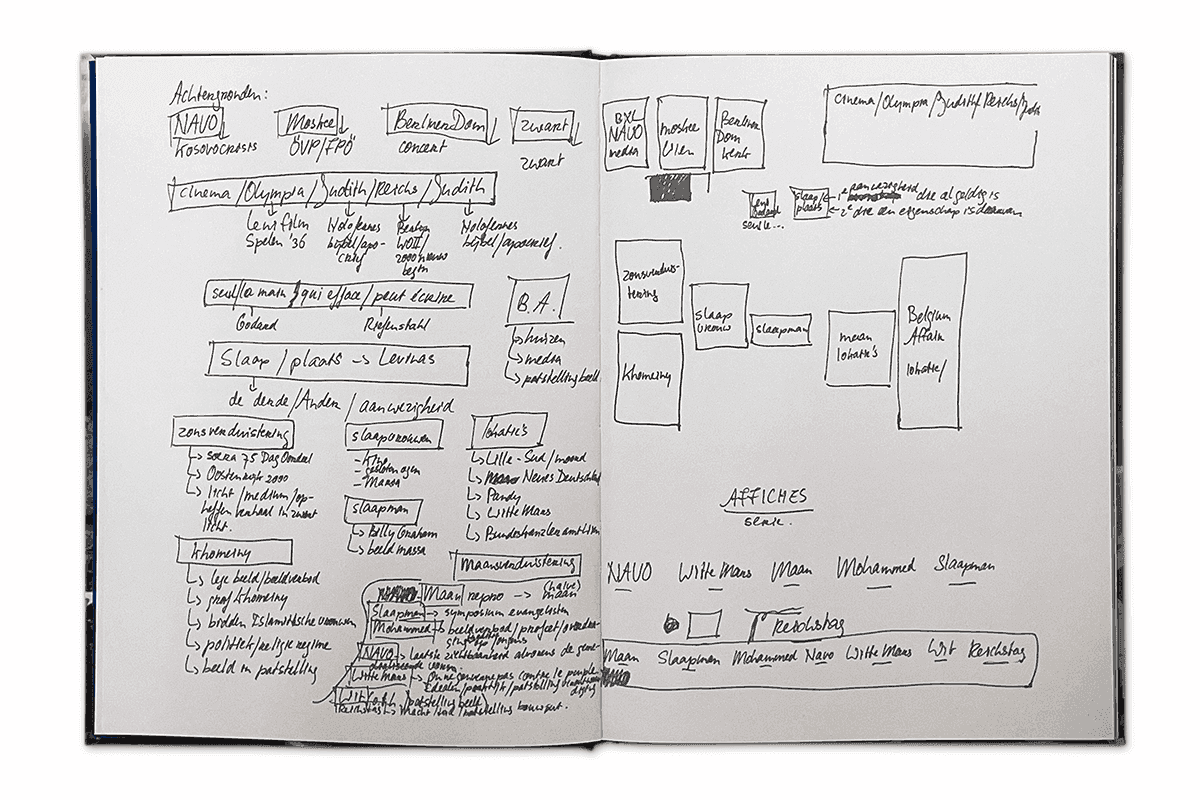 Achtergronden:
NAVO
Kosovocrisis
Moskee
ÖVP/FPÖ
Berliner Dom
concert
zwart
zwart
cinema/Olympia/Judith/Reichs/Judith
Leni film
Spelen '36
Holofernes
bijbel/apo-
Berlijn
WOII/
2000 nieuw
begin
Holofernes
bijbel/apocrief.
seul/la main qui efface/peut écrire
Godard
Riefenstahl
B.A.
huizen
media
patstelling beeld
Slaap/plaats -> Levinas
de derde/Ander/aanwezigheid
zonsverduistering
75
Oostenrijk 2000
licht/medium/op-
heffen in zwart
licht.
slaapvrouwen
- gesloten ogen
slaapman
Billy Graham
beeld massa
lokatie's
Lille-Sud/moord
Neues Deutschland
Pandy
Witte Mars
Bundeskanzleramt Wien
Khomeiny
lege beeld/beeldverbod
graf Khomeiny
bidden Islamitische vrouwen
politiek/religie regime
beeld in patstelling
Maansverduistering
Maan repro -> (halve) maan
Slaapman -> symposium evangelisten
Mohammed -> beeldverbod/profeet/
NAVO -> laatste
Witte Mars -> On ne gouverne pas contre le peuple
/patstelling beeld
Reichstag -> macht/ /patstelling
BXL
NAVO
media
moskee
Wien
Berliner
Dom
kerk
cinema/Olympia/Judith/Reichs/Judith
seul le...
slaap/
plaats
1e aanwezigheid die afgeldig is
2e die een eigenschap is daarvan
zonsverduis-
tering
Khomeiny
slaap
vrouw
slaapman
lokatie's
Belgium
Affair
lokatie/
AFFICHES
serie.
NAVO Witte Mars Maan Mohammed Slaapman
Reichstag
Maan Slaapman Mohammed Navo Witte Mars Wit Reichstag